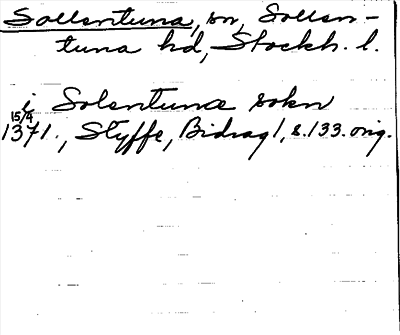 Sollentuna, sn, Sollen-
tuna hd, Stockh. l.
i Solentuna sokn
15/4
1371., Styffe, Bidrag 1, s. 133. orig.